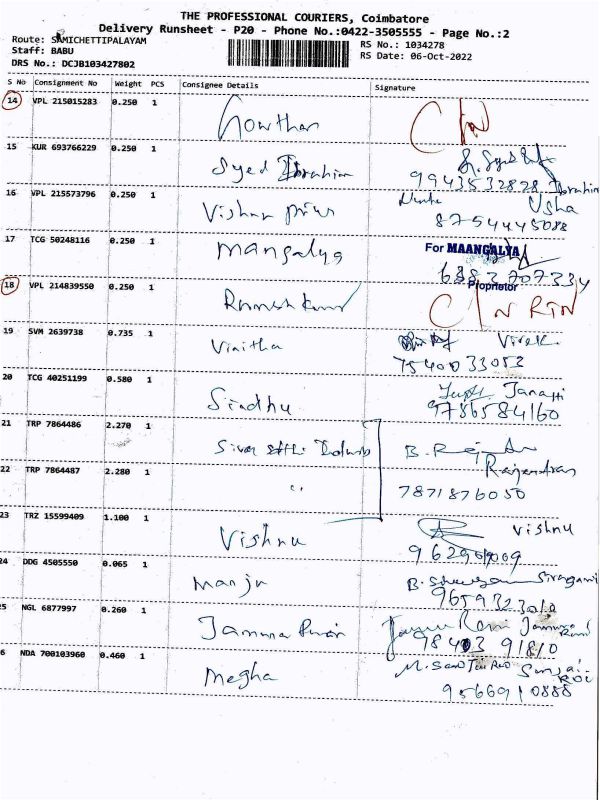 THE PROFESSIONAL COURIERS, Coimbatore
Delivery Runsheet - P20 - Phone No.:0422-3505555 - Page No.:2
Route: SAMICHETTIPALAYAM
Staff: BABU
DRS No.: DCJB103427802
RS No.: 1034278
RS Date: 06-Oct-2022
S No Consignment No Weight PCS Consignee Details Signature
14 VPL 215015283 0.250 1 Gowtham
15 KUR 693766229 0.250 1 Syed Ibrahim
9943532828 Ibrahim
16 VPL 215573796 0.250 1 Vishnu Usha
8754445088
17 TCG 50248116 0.250 1 Mangalya For MAANGALYA
6883707334
Proprietor
18 VPL 214839550 0.250 1 Ramesh Kumar
19 SVM 2639738 0.735 1 Vinitha Vivek
7540033053
20 TCG 40251199 0.580 1 Sindhu
9786584160
21 TRP 7864486 2.270 1 Siva B. Rajendran
22 TRP 7864487 2.280 1 " Rajendran
7871876050
23 TRZ 15599409 1.100 1 Vishnu Vishnu
24 DDG 4505550 0.065 1 Manju
9659323010
25 NGL 6877997 0.260 1
78403 91810
6 NDA 700103960 0.460 1 Megha
9566910888